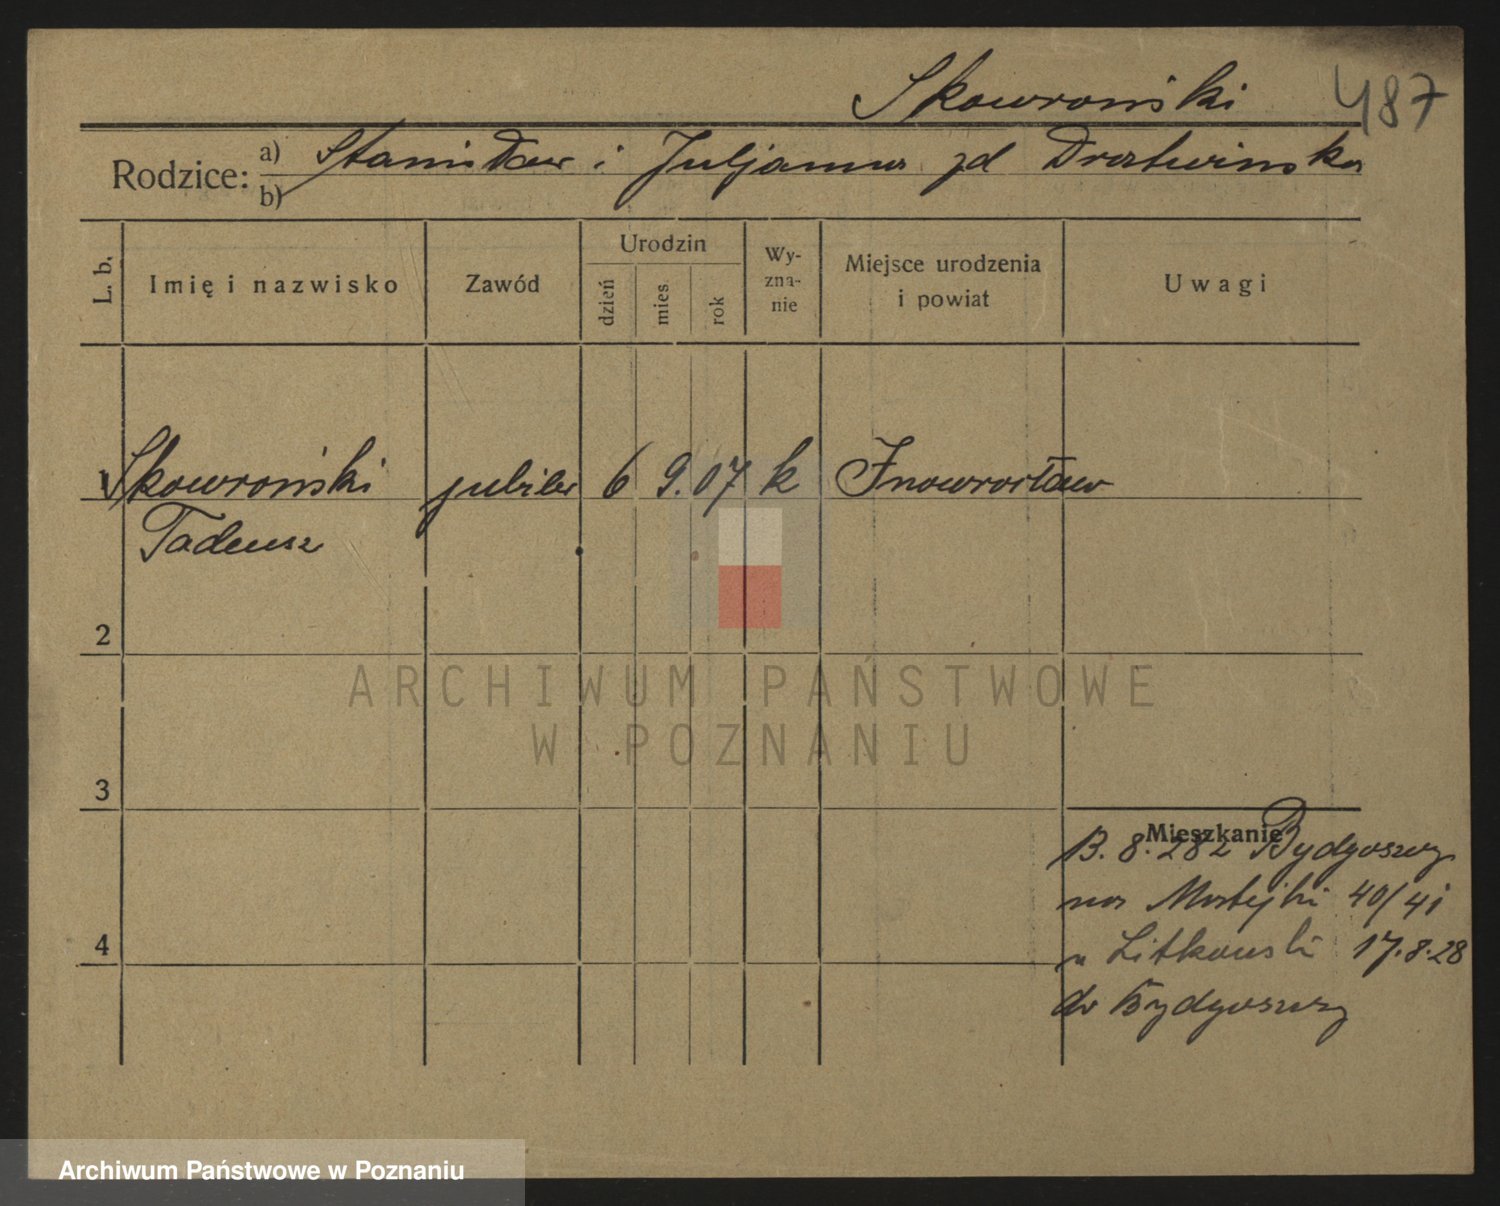 Skowroński 487
Rodzice: a) Stanisław i Juljanna zd Drastwinska
b)
L. b. Imię i nazwisko Zawód Urodzin dzień mies. rok Wy-zna-nie Miejsce urodzenia i powiat Uwagi
1 Skowroński jubiler 6 9. 07 k Inowrocław
Tadeusz
2
ARCHIWUM PAŃSTWOWE
W POZNANIU
3
Mieszkanie
13. 8. 282 Bydgoszcz
na Matejki 40/41
u Litkowski 17.8.28
do Bydgoszcz
4
Archiwum Państwowe w Poznaniu